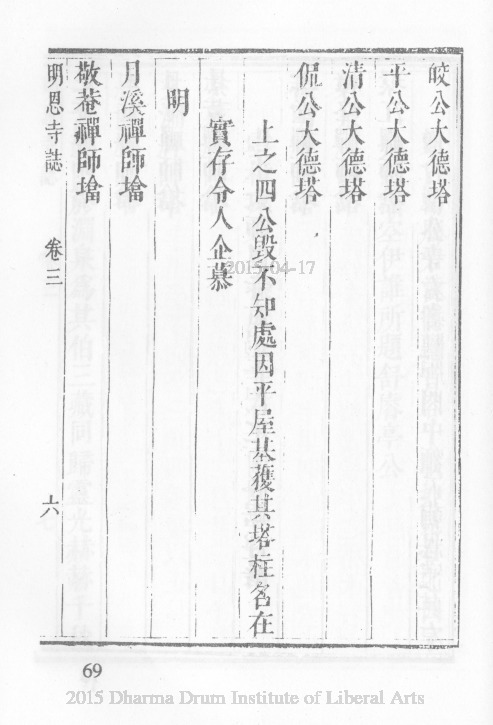 皎公大德塔
平公大德塔
清公大德塔
侃公大德塔
上之四公毀不知處因平屋基獲其塔柱名在
實存令人企慕
明
月溪禪師墖
敬菴禪師墖
明恩寺誌 卷三 六
2015-04-17
69
2015 Dharma Drum Institute of Liberal Arts